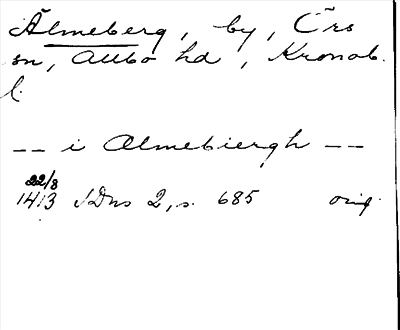 Älmeberg, by, Örs
sn, Allbo hd, Kronob.
l.
-- i Almebiergh --
22/8
1413 SDns 2, s. 685 orig.